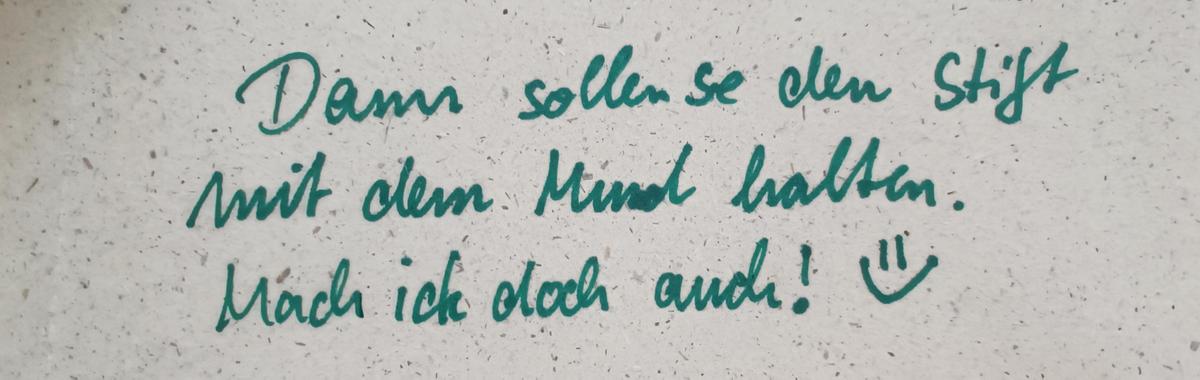 Dann sollen se den Stift
mit dem Mund halten.
Mach ick doch auch!